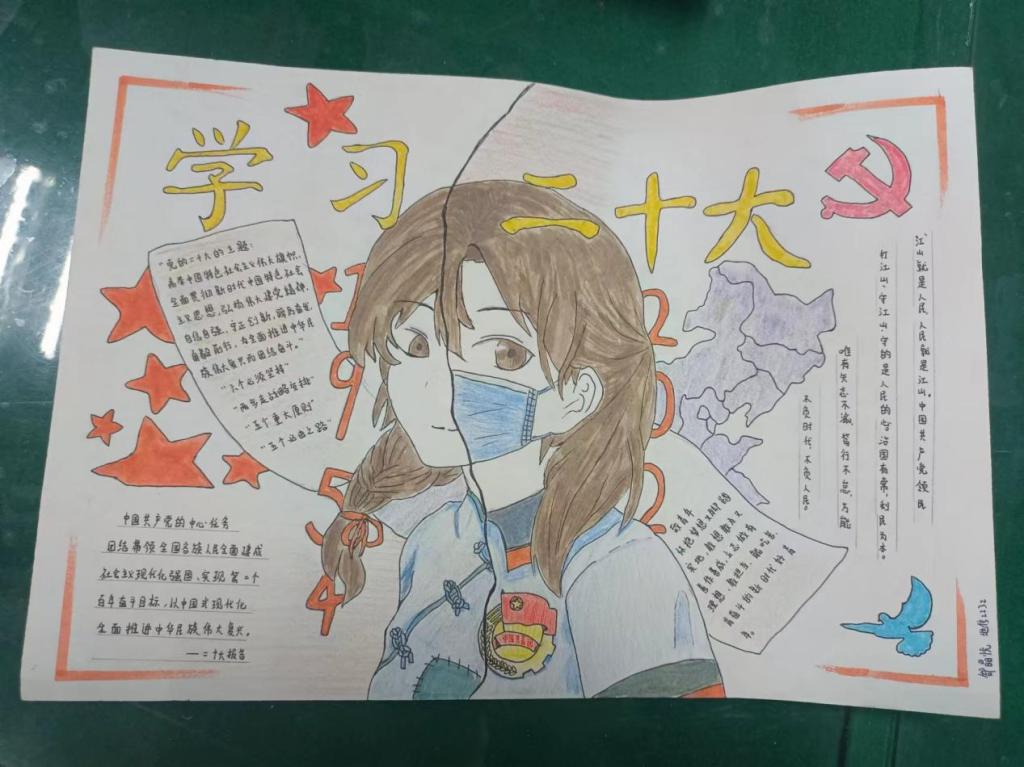 学习二十大
"党的二十大的主题：
高举中国特色社会主义伟大旗帜，
全面贯彻新时代中国特色社会
主义思想，弘扬伟大建党精神，
自信自强、守正创新，踔厉奋发、
勇毅前行，为全面推进中华民
族伟大复兴而团结奋斗。"
"三个必须坚持"
"两步走战略安排"
"五个重大原则"
"五个必由之路"
中国共产党的中心任务
团结带领全国各族人民全面建成
社会主义现代化强国、实现第二个
百年奋斗目标，以中国式现代化
全面推进中华民族伟大复兴。
——二十大报告
19
5
4
2
0
2
江山就是人民，人民就是江山。中国共产党领导人民
打江山、守江山，守的是人民的心。治国有常，利民为本。
唯有矢志不渝、笃行不怠，方能
不负时代、不负人民。
敢想敢为又
善作善成，立志做有
理想、敢担当、能吃苦、
肯奋斗的新时代好青
年。
中国共青团